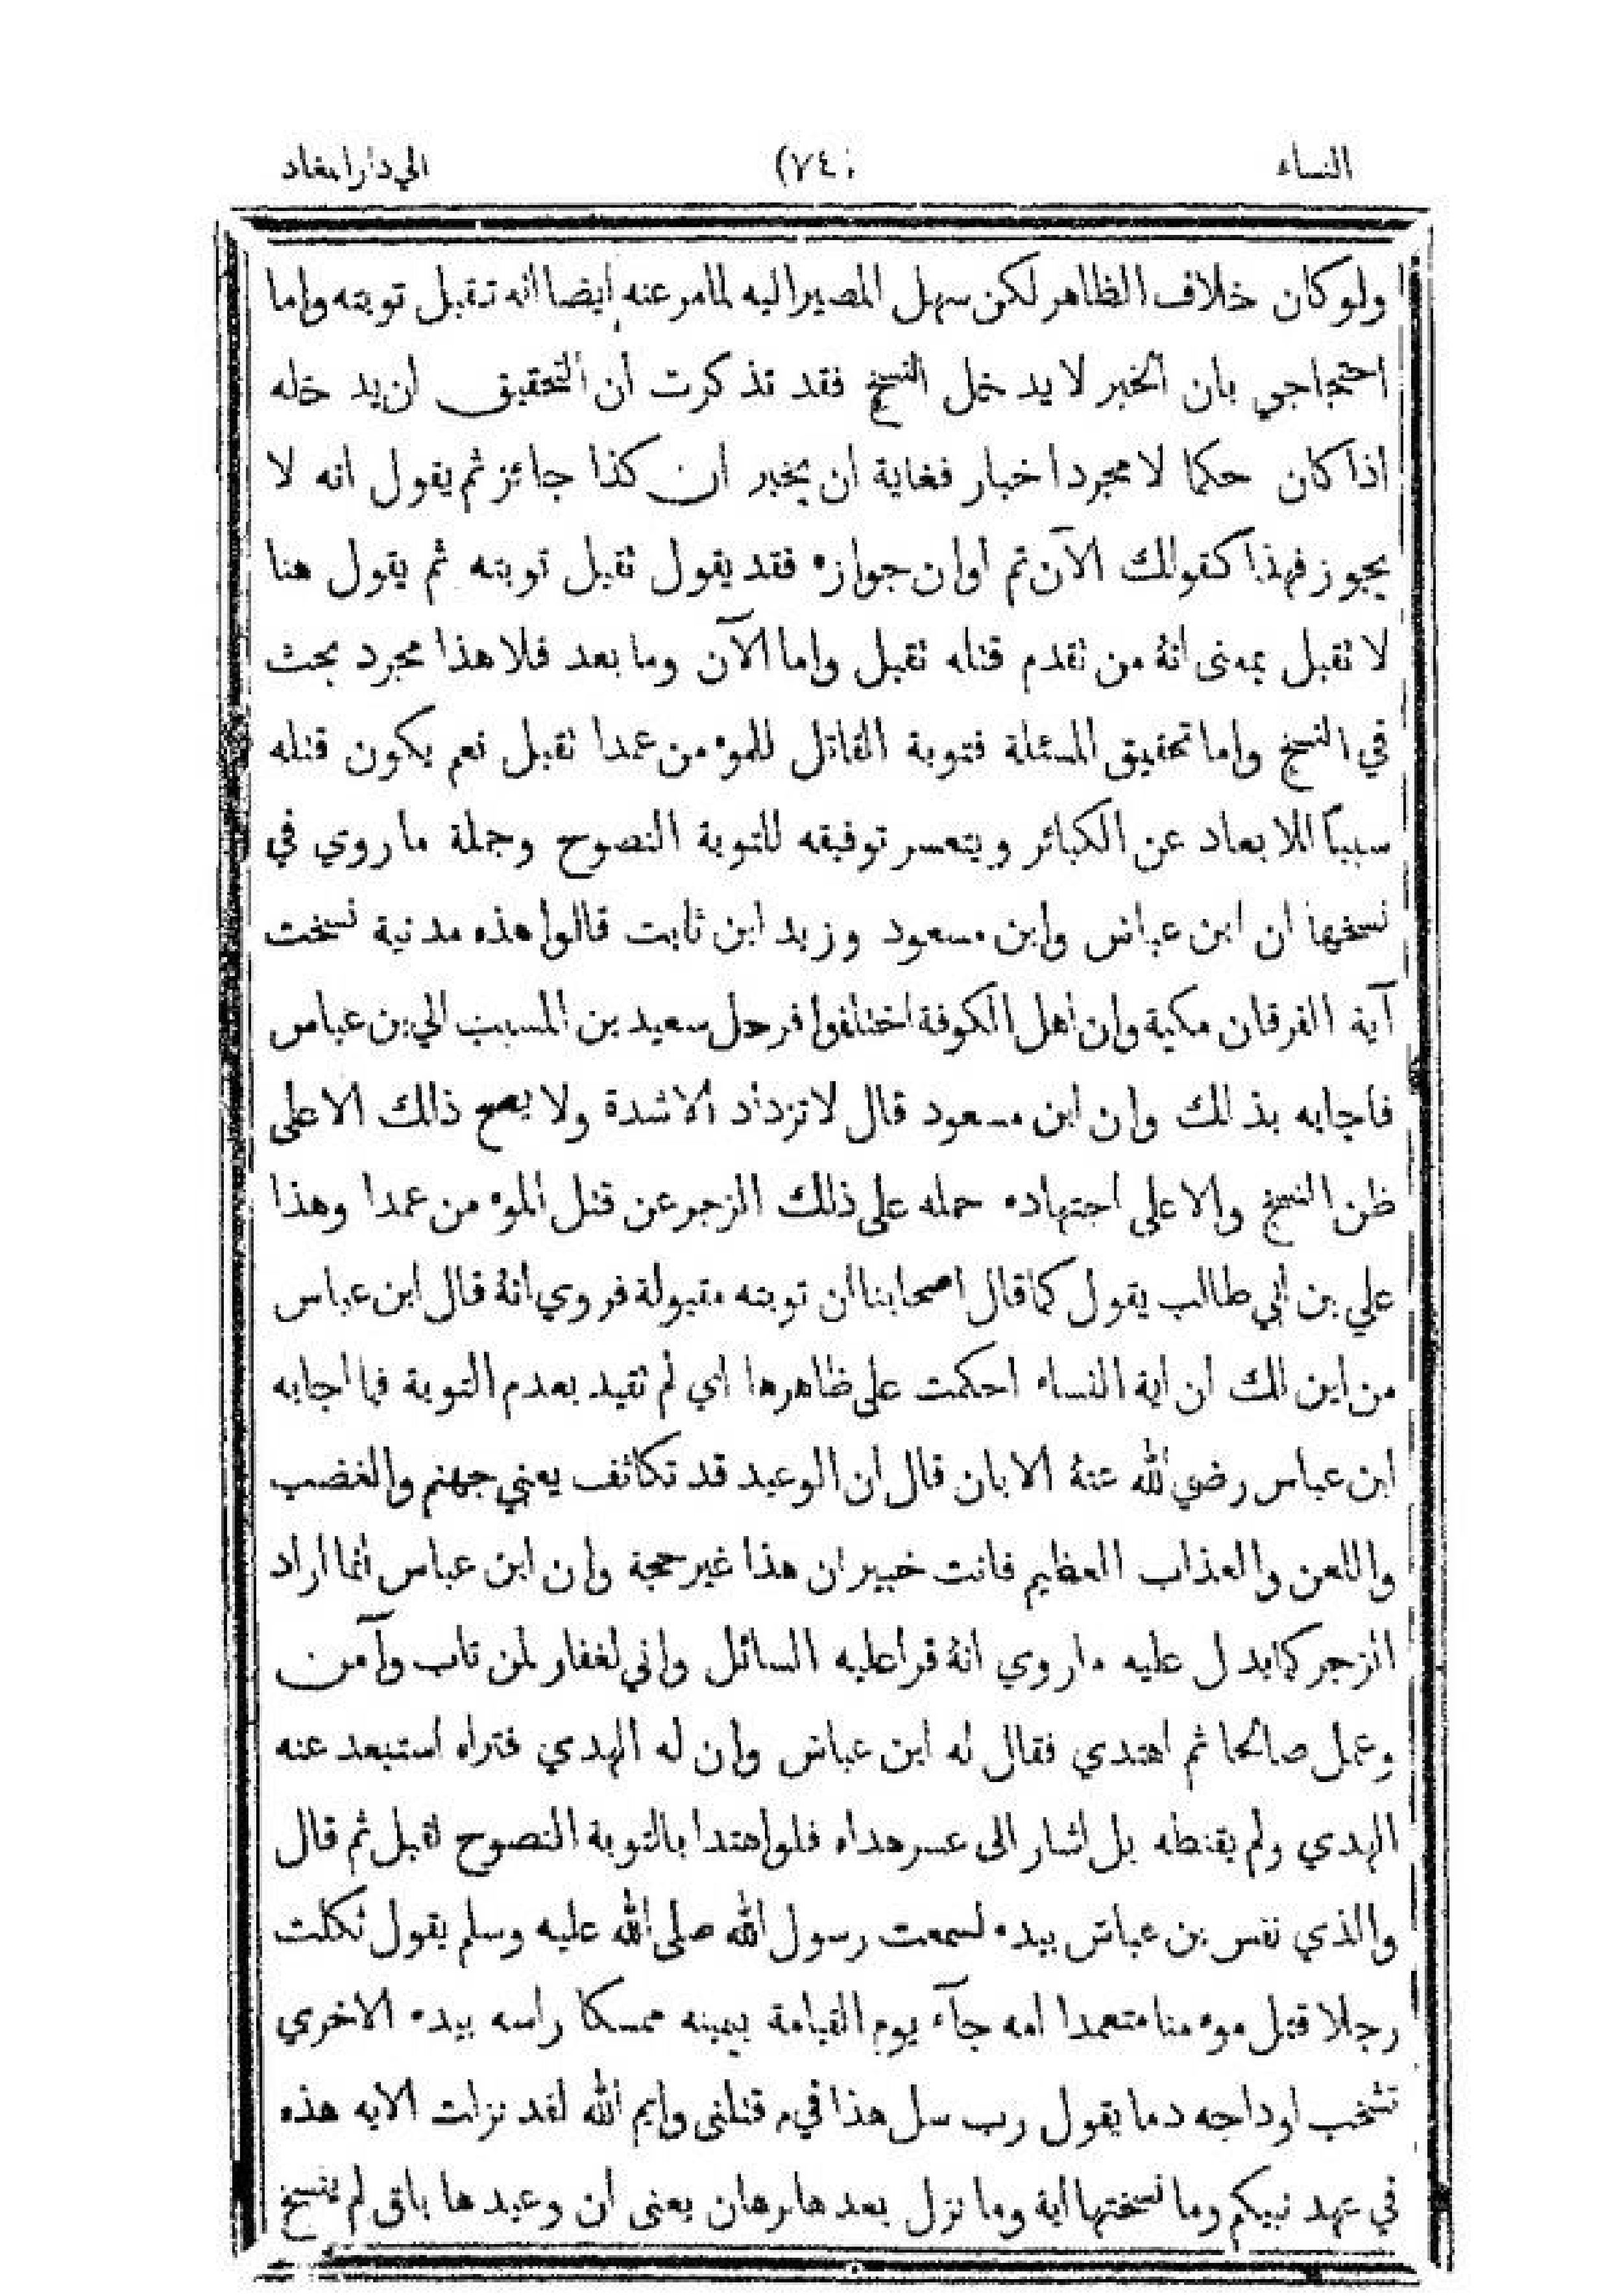 النساء (٧٤٠) الي دار المعاد
ولو كان خلاف الظاهر لكن سهل المصير اليه لمامر عنه أيضا انه تقبل توبته واما
احتجاجي بان الخبر لا يدخل النسخ فقد تذكرت أن التحقيق ان يدخله
اذا كان حكما لا مجرد اخبار فغاية ان يخبر ان كذا جائز ثم يقول انه لا
يجوز فهذا كقولك الآن تم اوان جوازه فقد يقول تقبل توبته ثم يقول هنا
لا تقبل بمعنى انهُ من تقدم قتله تقبل واما الآن وما بعد فلا هذا مجرد بحث
في النسخ واما تحقيق المسئلة فتوبة القاتل للموءمن عمدا تقبل نعم يكون قتله
سبباً للابعاد عن الكبائر ويتعسر توفيقه للتوبة النصوح وجملة ما روي في
نسخها ان ابن عباس وابن مسعود وزيد ابن ثابت قالوا هذه مدنية نسخت
آية الفرقان مكية وان اهل الكوفة اختلفوا فرحل سعيد بن المسيب الي بن عباس
فاجابه بذلك وان ابن مسعود قال لا تزداد الا شدة ولا يصح ذلك الا على
ظن النسخ والا على اجتهاده حمله على ذلك الزجر عن قتل الموءمن عمدا وهذا
علي بن أبي طالب يقول كما قال اصحابنا ان توبته مقبولة فروي انهُ قال ابن عباس
من اين لك ان اية النساء احكمت على ظاهرها اي لم تقيد بعدم التوبة فما اجابه
ابن عباس رضي الله عنهُ الا بان قال ان الوعيد قد تكاثف يعني جهنم والغضب
واللعن والعذاب العظيم فانت خبير ان هذا غير حجة وان ابن عباس انما اراد
الزجر كما يدل عليه ما روي انهُ قرا عليه السائل واني لغفار لمن تاب وآمن
وعمل صالحا ثم اهتدي فقال له ابن عباس وان له الهدي فتراه استبعد عنه
الهدي ولم يقنطه بل اشار الى عسر هداه فلو اهتدا بالتوبة النصوح لقبل ثم قال
والذي نفس بن عباس بيده لسمعت رسول الله صلى الله عليه وسلم يقول ثكلت
رجلا قتل موءمنا متعمدا امه جآء يوم القيامة بيمينه ممسكا راسه بيده الاخري
تشخب اوداجه دما يقول رب سل هذا فيم قتلنى وايم الله لقد نزلت الايه هذه
في عهد نبيكم وما نسختها اية وما نزل بعدها برهان يعنى ان وعيدها باق لم ينسخ